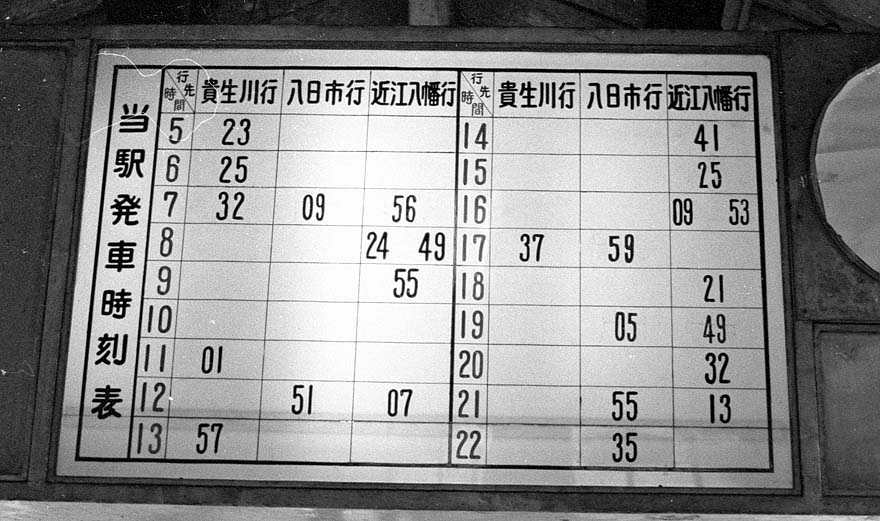 当駅発車時刻表
行先 時間 貴生川行 八日市行 近江八幡行
5 23
6 25
7 32 09 56
8 24 49
9 55
10
11 01
12 51 07
13 57
行先 時間 貴生川行 八日市行 近江八幡行
14 41
15 25
16 09 53
17 37 59
18 21
19 05 49
20 32
21 55 13
22 35